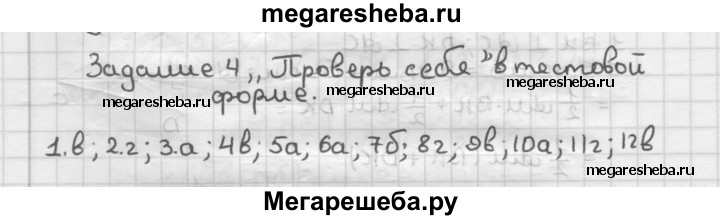 megaresheba.ru
Задание 4 „Проверь себя" в тестовой
megaresheba.ru megaresheba.ru
форме.
megaresheba.ru
1.в; 2.г; 3.а; 4в; 5а; 6а; 7б; 8г; 9в; 10а; 11г; 12в
megaresheba.ru
Мегарешеба.ру